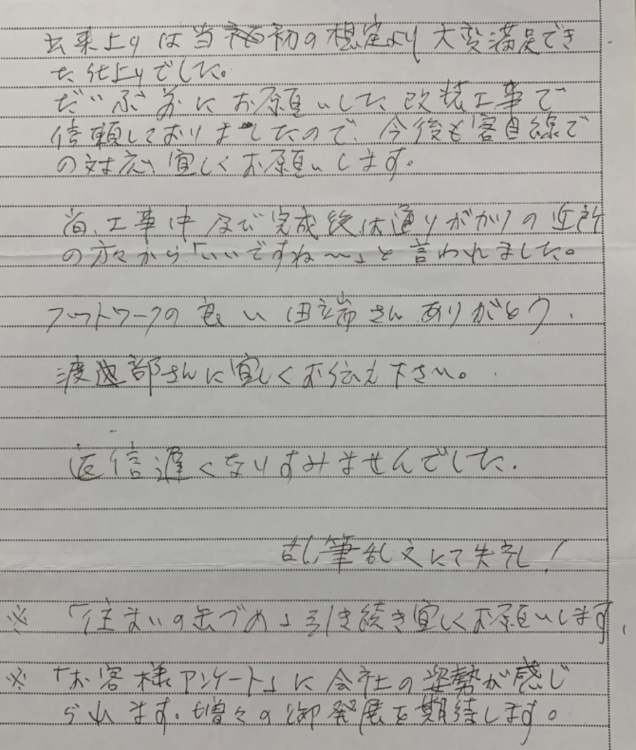 出来上りは当初の想定より大変満足でき
た仕上りでした。
だいぶ前にお願いした改装工事で
信頼しておりましたので、今後も客目線で
の対応宜しくお願いします。
尚、工事中及び完成後は通りがかりの近所
の方々から「いいですね〜」と言われました。
フットワークの良い田端さんありがとう.
渡辺部さんに宜しくお伝え下さい。
返信遅くなりすみませんでした.
乱筆乱文にて失礼!
※ 「住まいの缶づめ」引き続き宜しくお願いします,
※ 「お客様アンケート」に会社の姿勢が感じ
られます.増々の御発展を期待します。